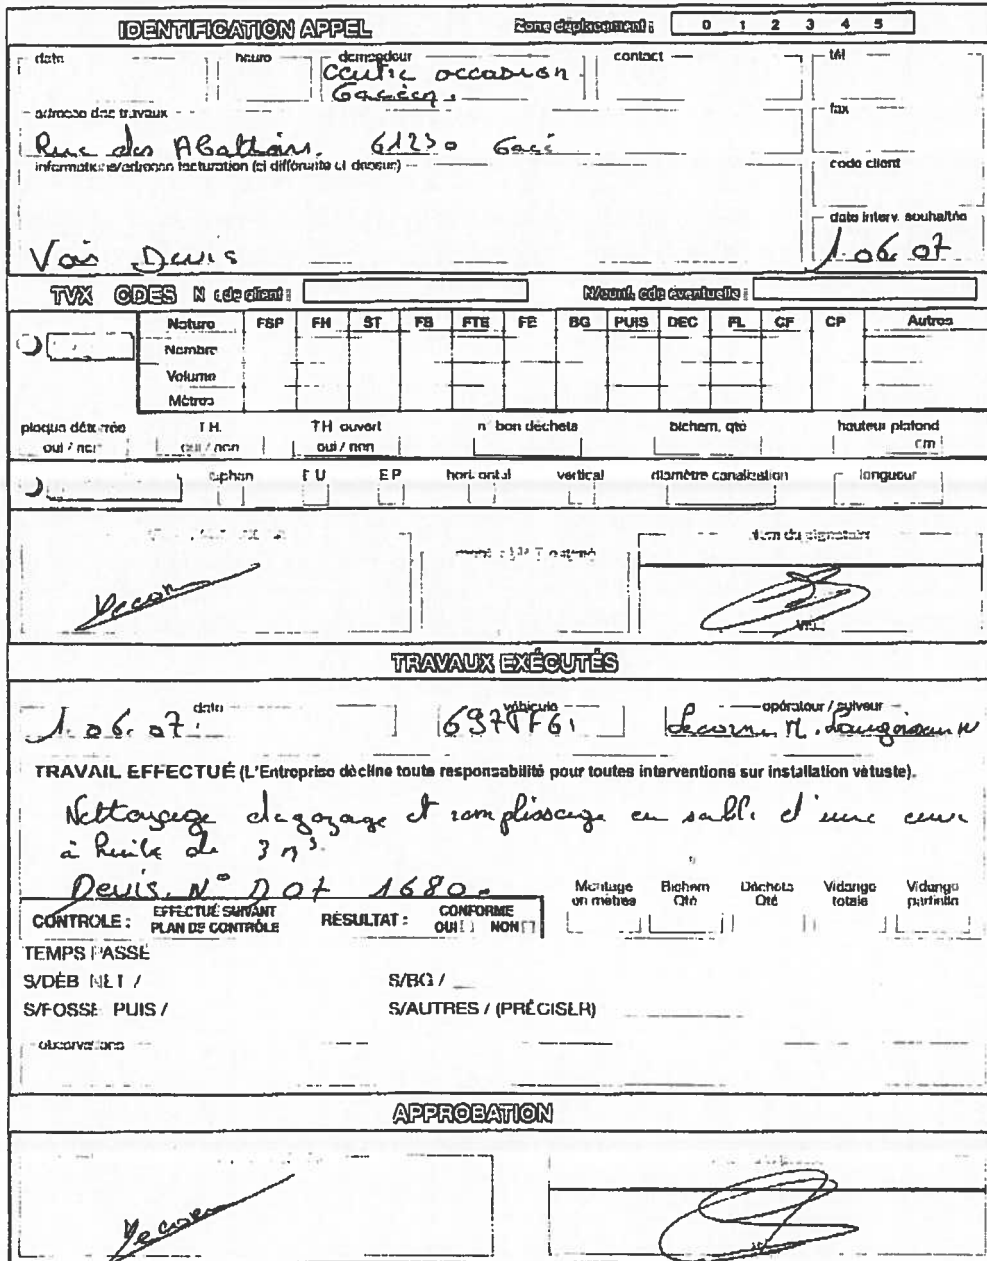 IDENTIFICATION APPEL Zone déplacement : 0 1 2 3 4 5
date heure demandeur contact tél
Centre occasion
Gacéen.
adresse des travaux fax
Rue des Abattoirs. 61230 Gacé
informations/adresse facturation (si différente ci dessus) code client
date interv. souhaitée
Voir Devis 1.06.07
TVX CDES N cde client : N/conf. cde éventuelle :
Nature FSP FH ST FB FTE FE BG PUIS DEC FL CF CP Autres
Nombre
Volume
Mètres
plaque déterrée T.H. TH ouvert n° bon déchets bichem. qté hauteur plafond
oui / non oui / non oui / non cm
siphon E U E P horizontal vertical diamètre canalisation longueur
Nom du signataire
Lecorn
TRAVAUX EXÉCUTÉS
date véhicule opérateur / suiveur
1.06.07. 697TF61
TRAVAIL EFFECTUÉ (L'Entreprise décline toute responsabilité pour toutes interventions sur installation vétuste).
Nettoyage degazage et remplissage en sable d'une cuve
à huile de 3 m³.
Devis. N° D 07 1680.
Métrage en mètres Bichem Qté Déchets Qté Vidange totale Vidange partielle
CONTROLE : EFFECTUÉ SUIVANT PLAN DE CONTRÔLE RÉSULTAT : CONFORME OUI NON
TEMPS PASSÉ
S/DÉB NET / S/BG /
S/FOSSE PUIS / S/AUTRES / (PRÉCISER)
observations
APPROBATION
Lecorn